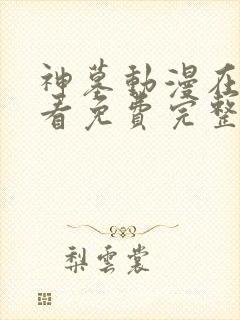 神墓動漫在
看免費完整
梨雲裳